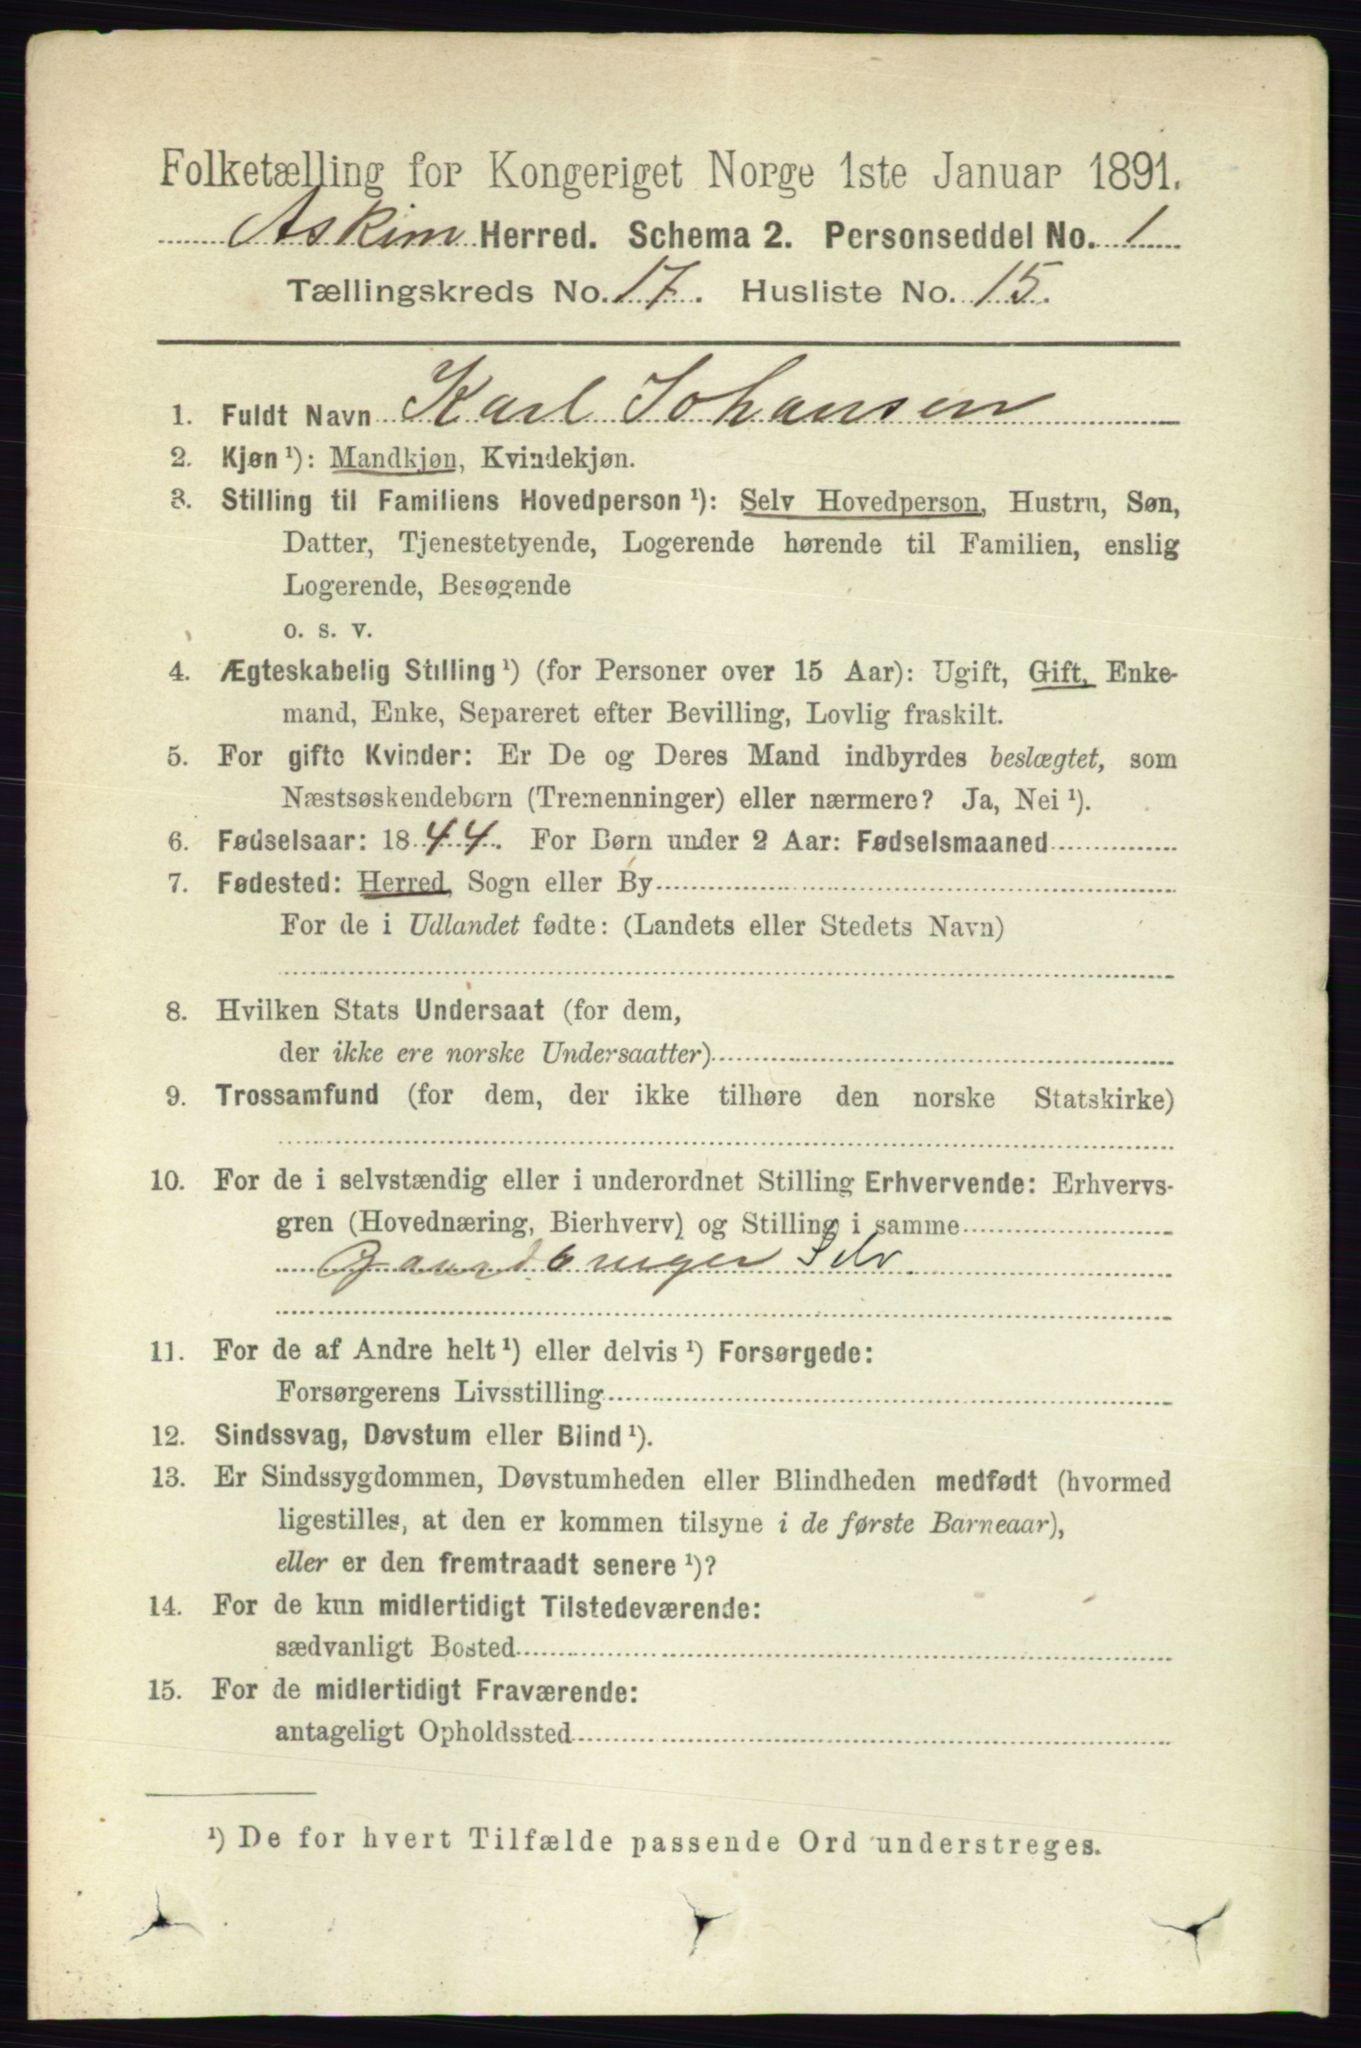 Folketælling for Kongeriget Norge 1ste Januar 1891.
Askim Herred. Schema 2. Personseddel No. 1
Tællingskreds No. 17. Husliste No. 15.
1. Fuldt Navn Karl Johansen
2. Kjøn¹): Mandkjøn, Kvindekjøn.
3. Stilling til Familiens Hovedperson¹): Selv Hovedperson, Hustru, Søn,
Datter, Tjenestetyende, Logerende hørende til Familien, enslig
Logerende, Besøgende
o. s. v.
4. Ægteskabelig Stilling¹) (for Personer over 15 Aar): Ugift, Gift, Enke-
mand, Enke, Separeret efter Bevilling, Lovlig fraskilt.
5. For gifte Kvinder: Er De og Deres Mand indbyrdes beslægtet, som
Næstsøskendebørn (Tremenninger) eller nærmere? Ja, Nei¹).
6. Fødselsaar: 1844. For Børn under 2 Aar: Fødselsmaaned
7. Fødested: Herred, Sogn eller By
For de i Udlandet fødte: (Landets eller Stedets Navn)
8. Hvilken Stats Undersaat (for dem,
der ikke ere norske Undersaatter)
9. Trossamfund (for dem, der ikke tilhøre den norske Statskirke)
10. For de i selvstændig eller i underordnet Stilling Erhvervende: Erhvervs-
gren (Hovednæring, Bierhverv) og Stilling i samme
Gaardbruger Selv
11. For de af Andre helt¹) eller delvis¹) Forsørgede:
Forsørgerens Livsstilling
12. Sindssvag, Døvstum eller Blind¹).
13. Er Sindssygdommen, Døvstumheden eller Blindheden medfødt (hvormed
ligestilles, at den er kommen tilsyne i de første Barneaar),
eller er den fremtraadt senere¹)?
14. For de kun midlertidigt Tilstedeværende:
sædvanligt Bosted
15. For de midlertidigt Fraværende:
antageligt Opholdssted
¹) De for hvert Tilfælde passende Ord understreges.